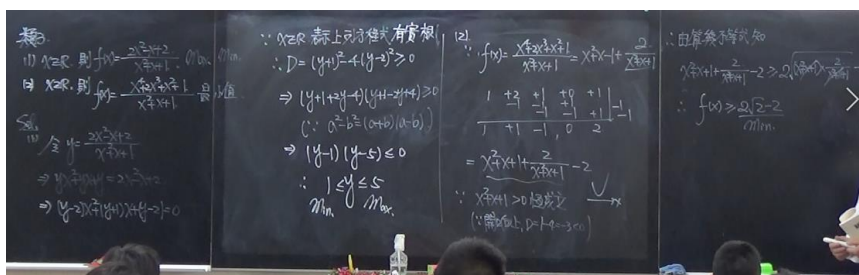 (1) x∈R, 則 f(x)=\frac{2x²-x+2}{x²+x+1} Max. Min.
(2) x∈R. 則 f(x)=\frac{x⁴+2x³+x²+1}{x²+x+1}
Sol.
(1) 令 y=\frac{2x²-x+2}{x²+x+1}
⇒ yx²+yx+y=2x²-x+2
⇒ (y-2)x²+(y+1)x+(y-2)=0
∵ x∈R 表示上列方程式有實根
∴ D=(y+1)²-4(y-2)²≥0
⇒ (y+1+2y-4)(y+1-2y+4)≥0
(∵ a²-b²=(a+b)(a-b))
⇒ (y-1)(y-5)≤0
∴ 1≤y≤5
Min. Max.
(2)
∵ f(x)=\frac{x⁴+2x³+x²+1}{x²+x+1}=x²+x-1+\frac{2}{x²+x+1}
1 +2 +1 +0 +1
-1 -1 +1 -1
-1 -1 +1 -1
1 +1 -1, 0 2
=x²+x+1+\frac{2}{x²+x+1}-2
∵ x²+x+1>0 恆成立
(∵ 開口向上, D=1-4=-3<0)
x
∴ 由算幾不等式知
x²+x+1+\frac{2}{x²+x+1}-2≥2
∴ f(x)≥2√2-2
Min.